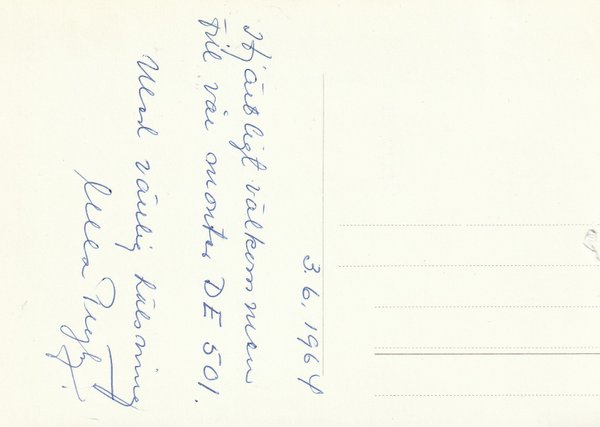 3.6.1964
Hjärtligt välkommen
till vår monter DE 501.
Med vänlig hälsning